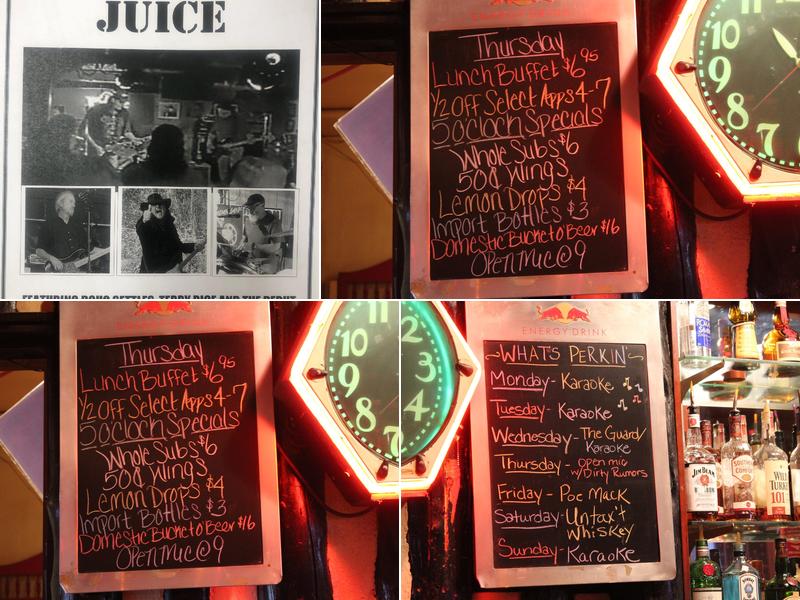 JUICE
Thursday
Lunch Buffet $6.95
½ Off Select Apps 4-7
5 O'clock Specials
Whole Subs $6
50¢ Wings
Lemon Drops $4
Import Bottles $3
Domestic Bucket o Beer $16
Open Mic @ 9
11
10
9
8
7
Thursday
Lunch Buffet $6.95
½ Off Select Apps 4-7
5 O'clock Specials
Whole Subs $6
50¢ Wings
Lemon Drops $4
Import Bottles $3
Domestic Bucket o Beer $16
Open Mic @ 9
10
9
8
7
2
3
4
ENERGY DRINK
~WHAT'S PERKIN'~
Monday - Karaoke
Tuesday - Karaoke
Wednesday - The Guard/
Karaoke
Thursday - open mic
w/Dirty Rumors
Friday - Poc Mack
Saturday - Untax't
Whiskey
Sunday - Karaoke
JIM BEAM
SOUTHERN COMFORT
WILD TURKEY
101